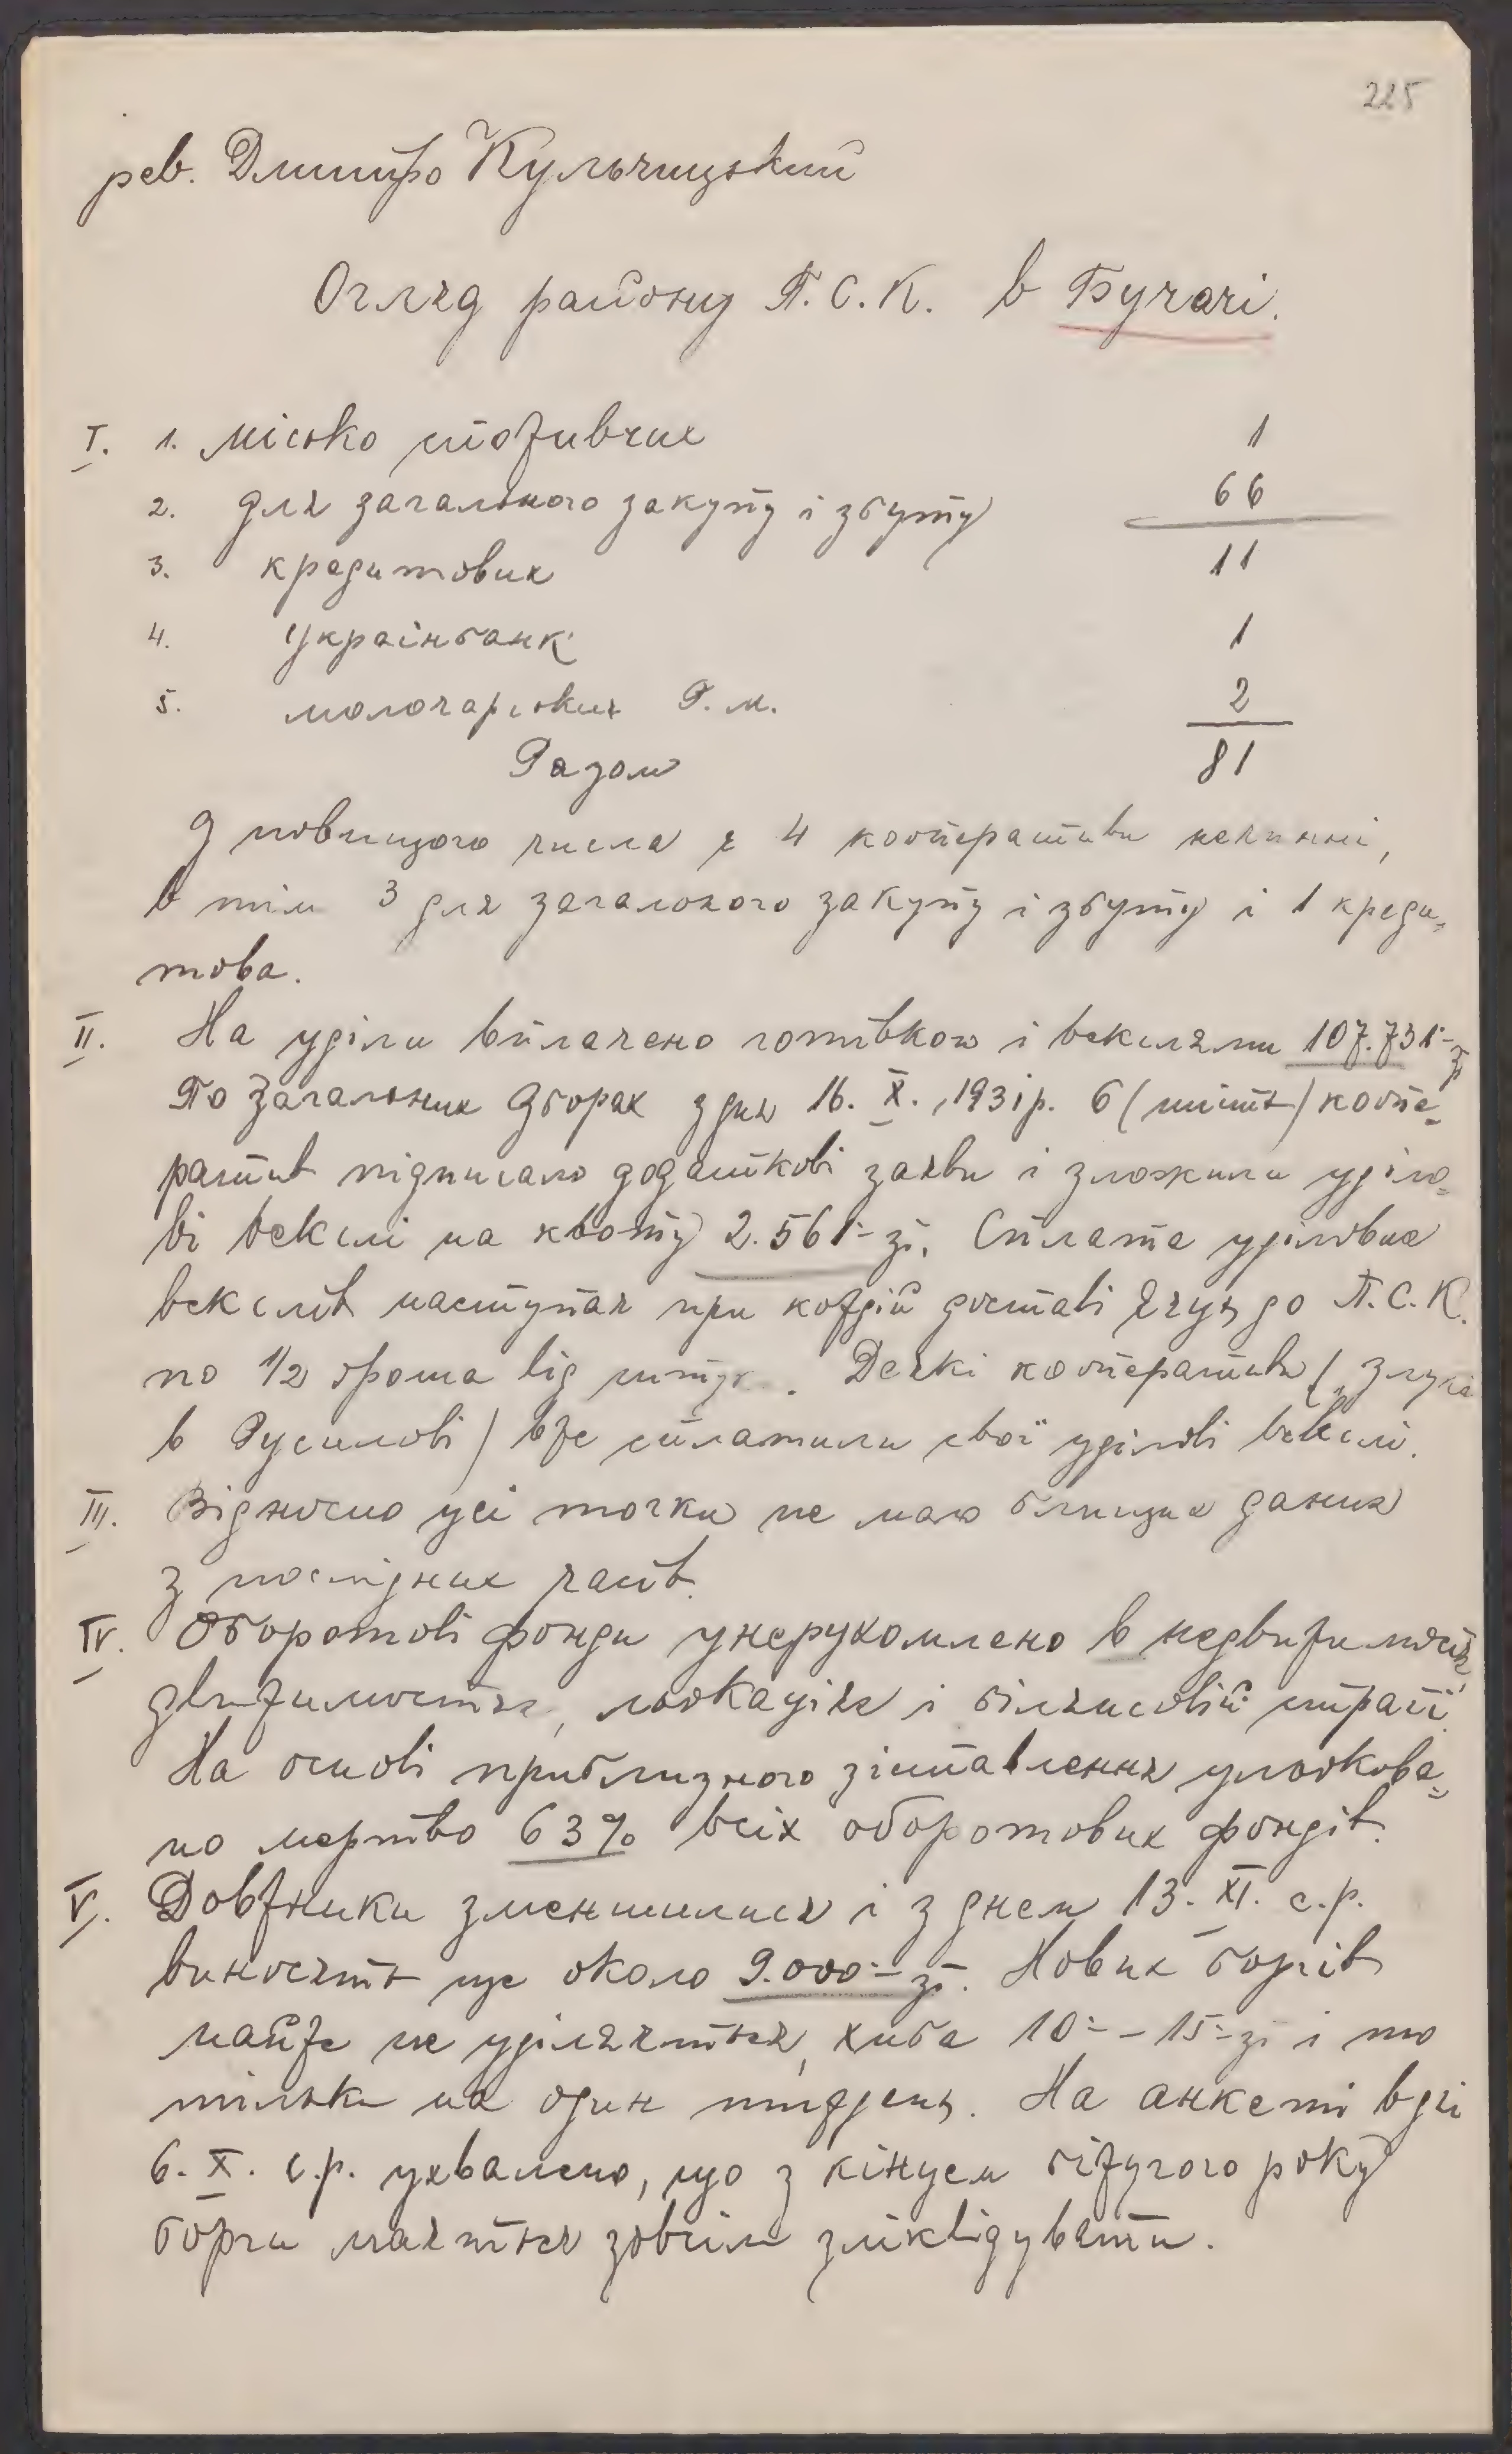 225
рев. Дмитро Кульчицький
Огляд району П.С.К. в Бучачі.
I. 1. місько споживчих 1
2. для загального закупу і збуту 66
3. кредитових 11
4. Українбанк 1
5. молочарських Р.м. 2
Разом 81
З повищого числа є 4 кооперативи нечинні,
в тім 3 для загального закупу і збуту і 1 креди=
това.
II. На уділи вплачено готівкою і векселями 107.731·- зр
По Загальних Зборах з дня 16. X. 1931р. 6 (шість) коопе=
ратив підписало додаткові заяви і зложили уділо=
ві векслі на квоту 2.561·- зі. Сплата уділових
векслів наступає при кождій доставі яєць до П.С.К.
по 1/2 гроша від штуки. Деякі кооперативи („Злука
в Русилові) вже сплатили свої уділові векслі.
III. Відносно усі точки не маю близших даних
з послідних часів.
IV. Оборотові фонди унерухомлено в недвижимостях,
движимостях, льокаціях і білянсовій страті.
На основі приблизного зіставлення ульокова=
но мертво 63% всіх оборотових фондів.
V. Довжники зменшилися і з днем 13. XI. с.р.
виносять ще около 9.000·- зі. Нових боргів
майже не уділяється, хиба 10·- - 15·- зі і то
тільки на один тиждень. На анкеті в дні
6. X. с.р. ухвалено, що з кінцем біжучого року
борги мається зовсім зліквідувати.